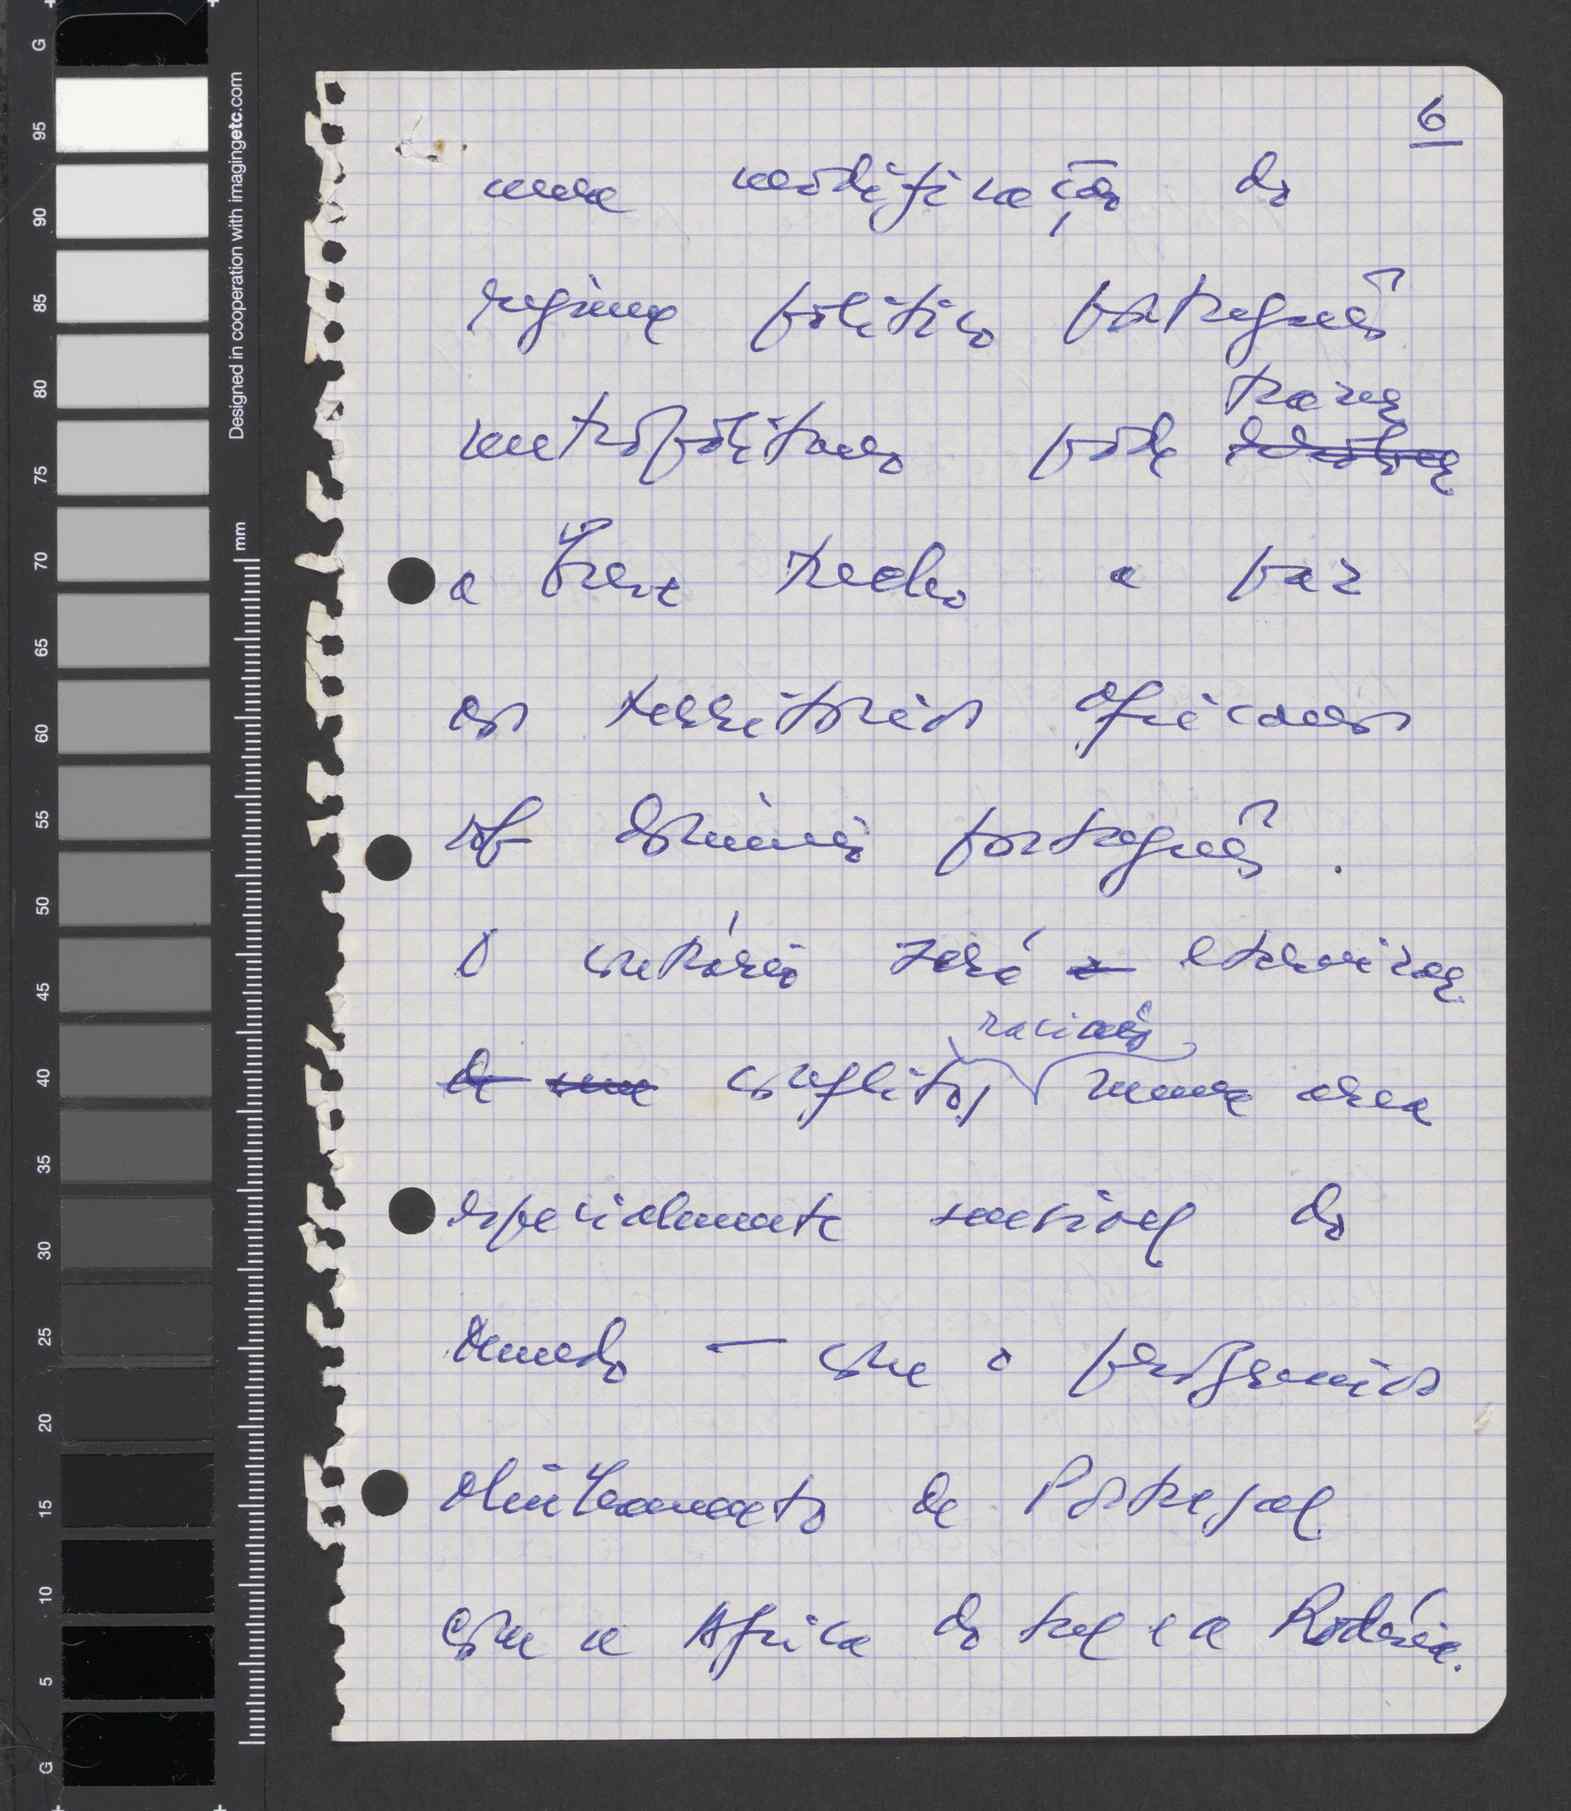 6
uma modificação do
regime político português
trazer
metropolitano pode
a breve trecho a paz
aos territórios africanos
sob domínio português.
O contrário será a eternizar
de um conflito, numa area
racial
especialmente sensível do
mundo — com o perigoso
alinhamento de Portugal
com a Africa do Sul e a Rodésia.
Designed in cooperation with imagingetc.com
mm
G
95
90
85
80
75
70
65
60
55
50
45
40
35
30
25
20
15
10
5
G